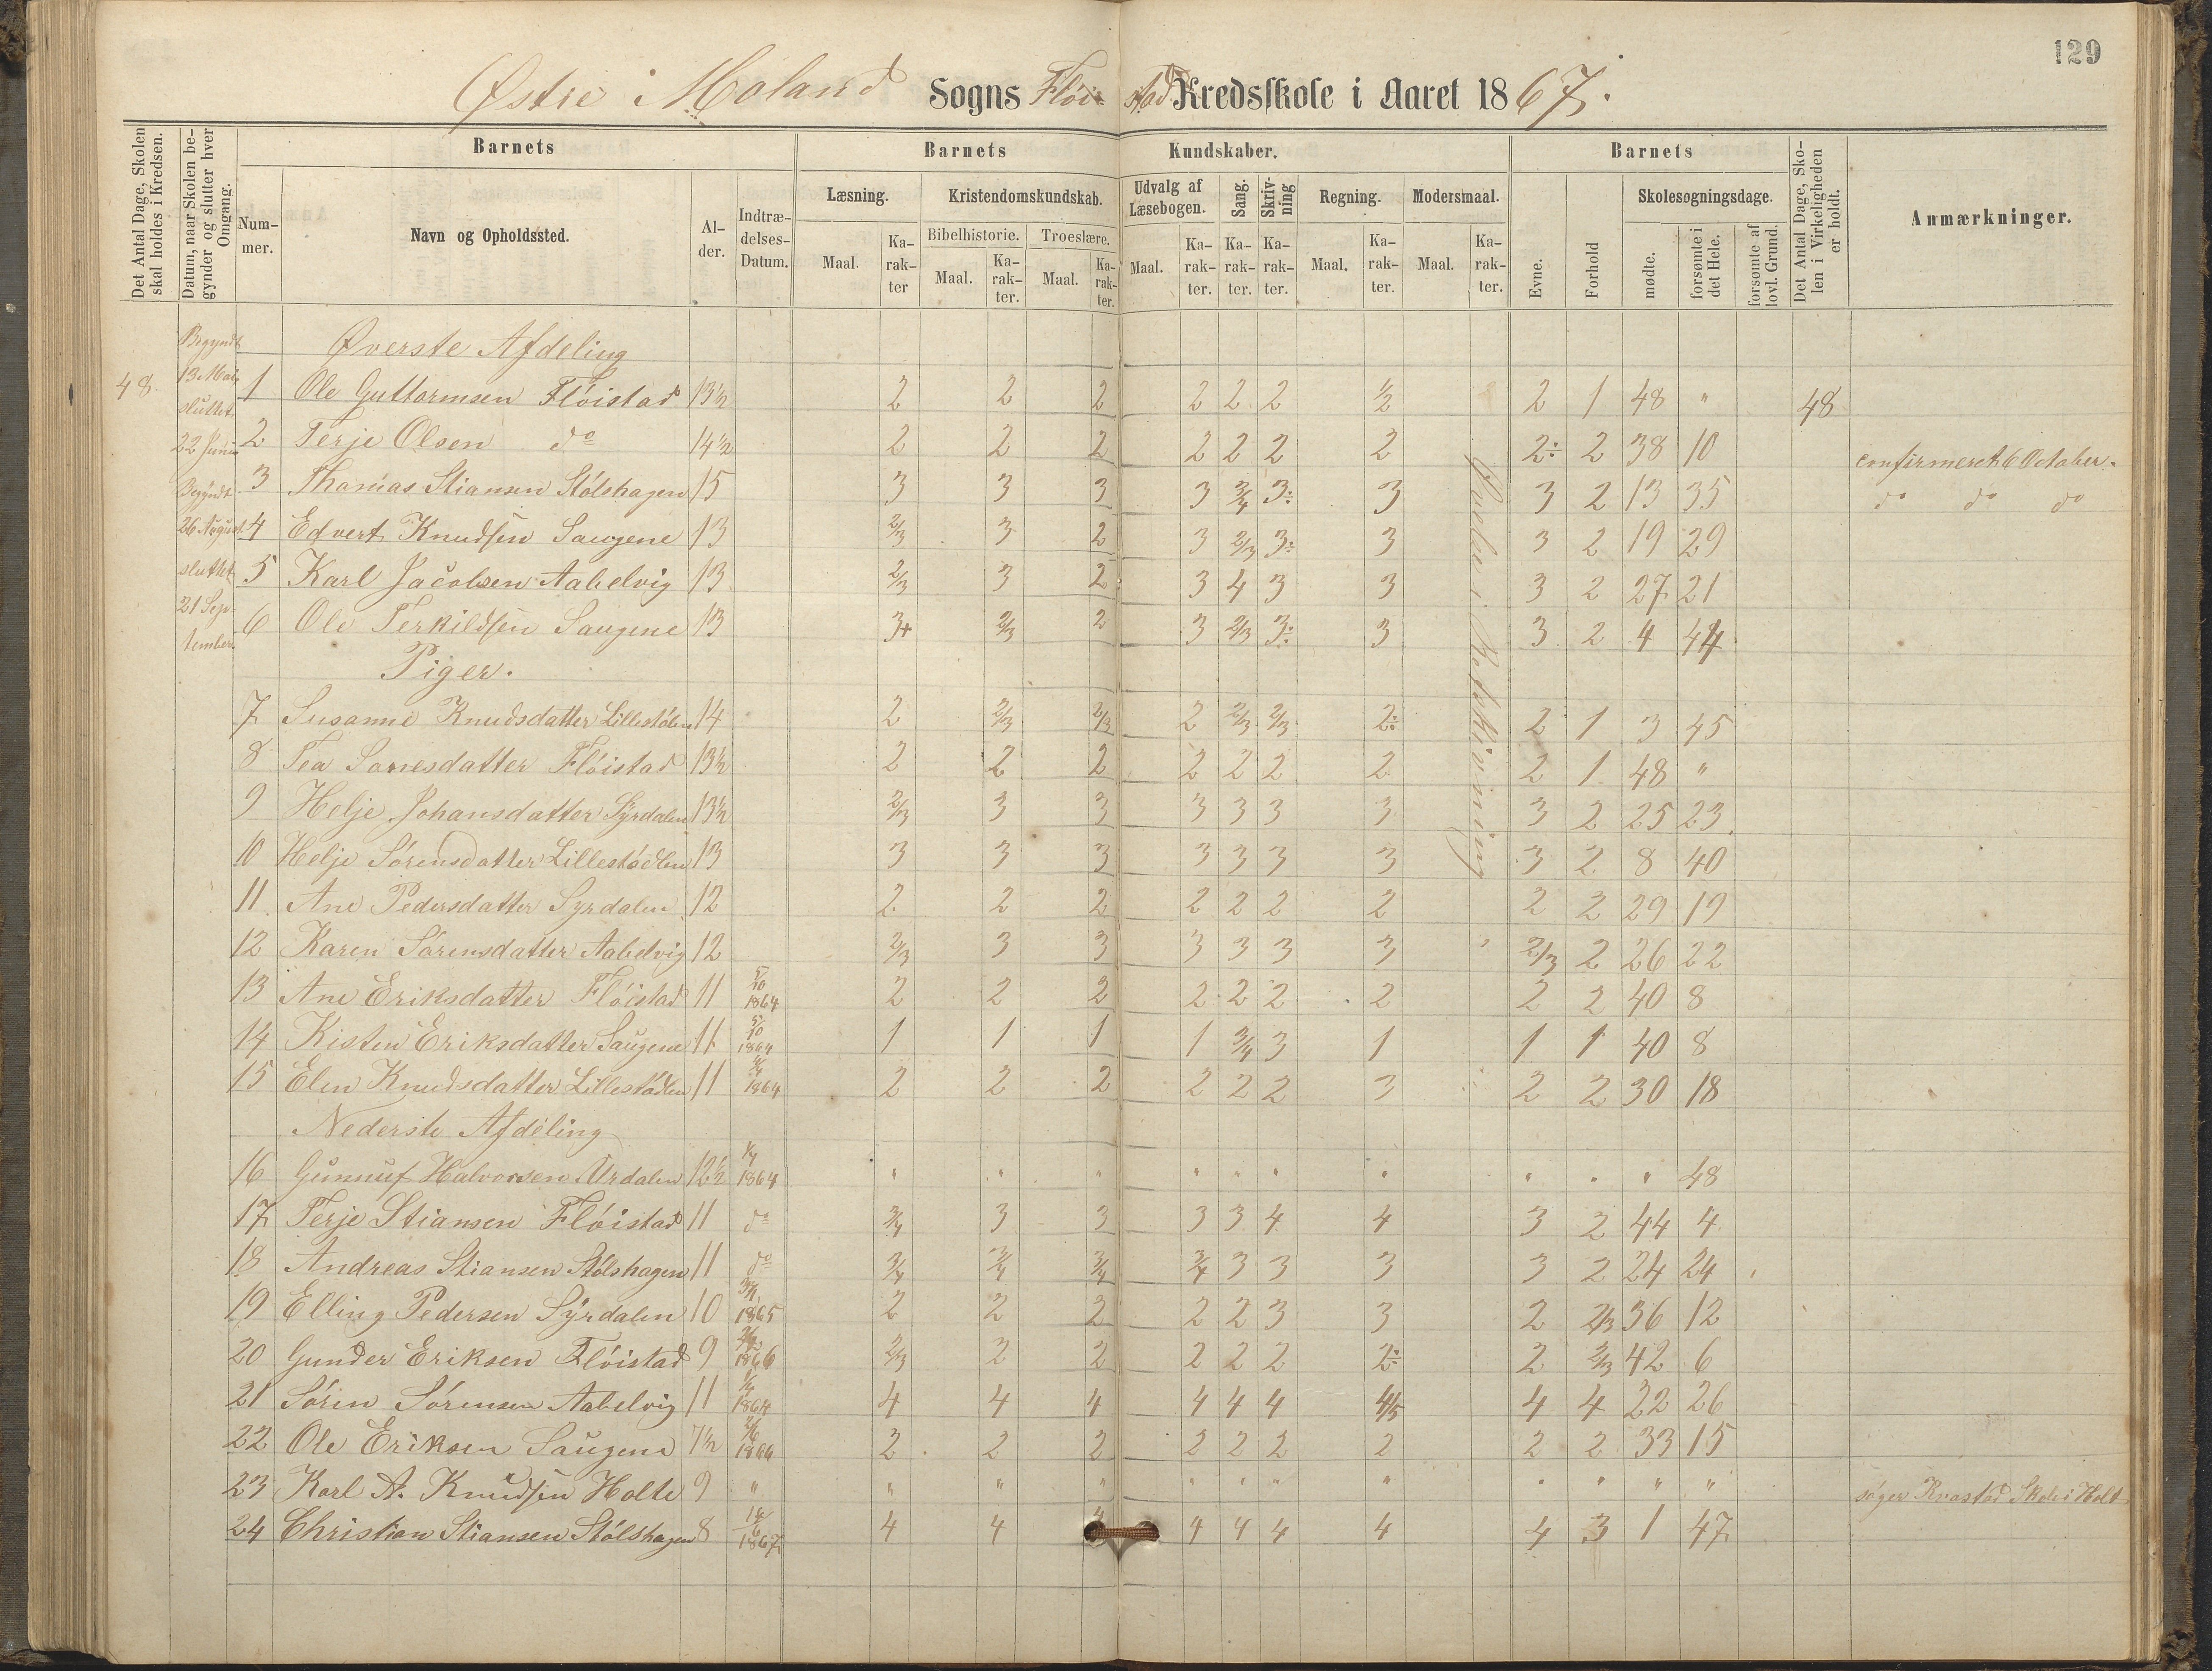 129
Østre Moland Sogns Flöistad Kredsskole i Aaret 1867.
Det Antal Dage, Skolen skal holdes i Kredsen.
Datum, naar Skolen begynder og slutter hver Omgang.
Barnets
Nummer.
Navn og Opholdssted.
Alder.
Indtrædelses-Datum.
Barnets Kundskaber.
Læsning.
Maal.
Karakter
Kristendomskundskab.
Bibelhistorie.
Maal.
Karakter.
Troeslære.
Maal.
Karakter.
Udvalg af Læsebogen.
Maal.
Karakter.
Sang.
Karakter.
Skrivning
Karakter.
Regning.
Maal.
Karakter.
Modersmaal.
Maal.
Karakter.
Barnets
Evne.
Forhold
Skolesøgningsdage.
mødte.
forsømte i det Hele.
forsømte af lovl. Grund.
Det Antal Dage, Skolen i Virkeligheden er holdt.
Anmærkninger.
48.
Begyndt
13 Mai
sluttet
22 Juni
Begyndt
26 August
sluttet
21 Sep-
tember.
Øverste Afdeling
1 Ole Guttormsen Flöistad 13½ 2 2 2 2 2 2 ½ 2 1 48 " 48
2 Terje Olsen do 14½ 2 2 2 2 2 2 2 2÷ 2 38 10 confirmeret 6 October.
3 Thomas Stiansen Stölshagen 15 3 3 3 3 3/4 3÷ 3 3 2 13 35 do do do
4 Edvert Knudsen Saugene 13 2/3 3 2 3 2/3 3÷ 3 3 2 19 29
5 Karl Jacobsen Aabelvig 13 2/3 3 2 3 4 3 3 3 2 27 21
6 Ole Terkildsen Saugene 13 3+ 2/3 2 3 2/3 3÷ 3 3 2 4 44
Piger.
7 Susanne Knudsdatter Lillestölen 14 2 2/3 2/3 2 2/3 2/3 2÷ 2 1 3 45
8 Tea Sannesdatter Flöistad 13½ 2 2 2 2 2 2 2 2 1 48 "
9 Helje Johansdatter Syrdalen 13½ 2/3 3 3 3 3 3 3 3 2 25 23
10 Helje Sörensdatter Lillestödlen 13 3 3 3 3 3 3 3 3 2 8 40
11 Ane Pedersdatter Syrdalen 12 2 2 2 2 2 2 2 2 2 29 19
12 Karen Sörensdatter Aabelvig 12 2/3 3 3 3 3 3 3 2/3 2 26 22
13 Ane Eriksdatter Flöistad 11 5/10 1864 2 2 2 2 2 2 2 2 2 40 8
14 Kisten Eriksdatter Saugene 11 5/10 1864 1 1 1 1 3/4 3 1 1 1 40 8
15 Elen Knudsdatter Lillestödlen 11 1864 2 2 2 2 2 2 3 2 2 30 18
Nederste Afdeling
16 Gunnuf Halvorsen Urdalen 12½ 1864 " " " " " " " " " " 48
17 Terje Stiansen Flöistad 11 do 3/4 3 3 3 3 4 4 3 2 44 4
18 Andreas Stiansen Stölshagen 11 do 3/4 3/4 3/4 3/4 3 3 3 3 2 24 24
19 Elling Pedersen Syrdalen 10 1865 2 2 2 2 2 3 3 2 2/3 36 12
20 Gunder Eriksen Flöistad 9 1866 2/3 2 2 2 2 2 2÷ 2 2/3 42 6
21 Sören Sörensen Aabelvig 11 1864 4 4 4 4 4 4 4/5 4 4 22 26
22 Ole Eriksen Saugene 7½ 1866 2 2 2 2 2 2 2 2 2 33 15
23 Karl A. Knudsen Holte 9 " " " " " " " " " " " " söger Kvastad Skole i Holt
24 Christian Stiansen Stölshagen 8 14/6 1867 4 4 4 4 4 4 4 4 3 1 47
Øvelse i Retskrivning